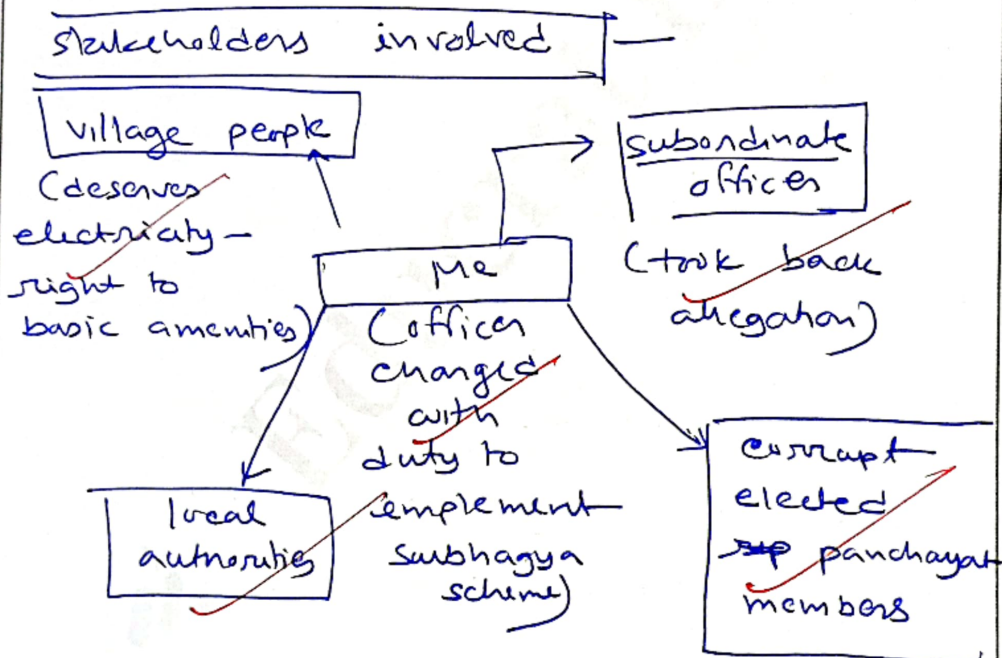 stakeholders involved
village people
(deserves
electricity -
right to
basic amenities)
subordinate
officer
(took back
allegation)
Me
(officer
charged
with
duty to
emplement
saubhagya
scheme)
local
authorities
corrupt
elected
panchayat
members